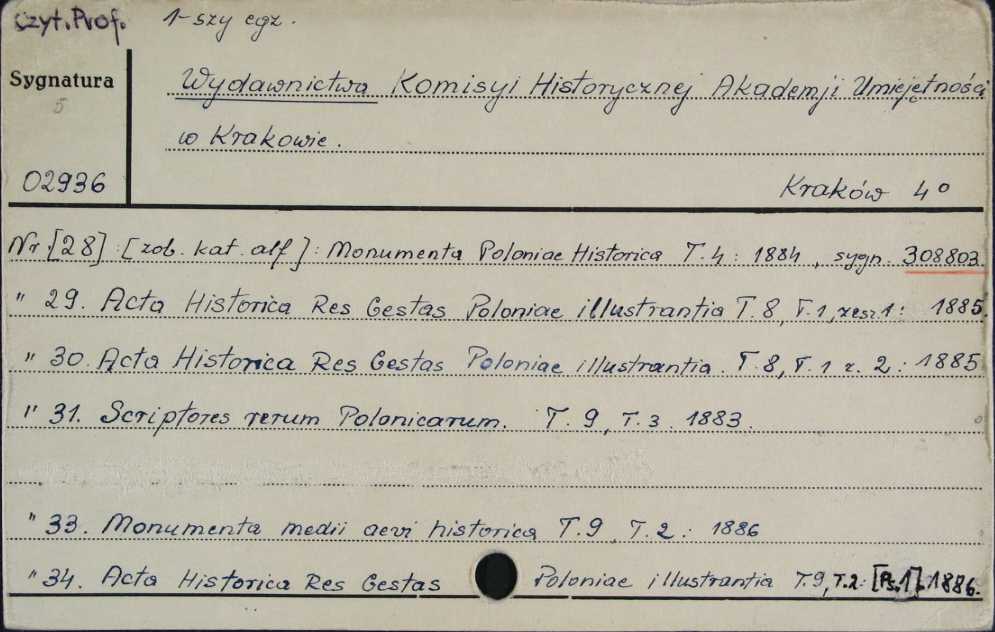 Czyt. Prof. 1-szy egz.
Sygnatura
5
Wydawnictwa Komisyi Historycznej Akademji Umiejętności
w Krakowie.
02936
Kraków 4°
Nr. [28] : [zob. kat. alf] : Monumenta Poloniae Historica T. 4 : 1884, sygn. 308803.
" 29. Acta Historica Res Gestas Poloniae illustrantia T. 8, T. 1, zesz. 1 : 1885.
" 30. Acta Historica Res Gestas Poloniae illustrantia. T. 8, T. 1 z. 2. : 1885
" 31. Scriptores rerum Polonicarum. T. 9, T. 3. 1883.
" 33. Monumenta medii aevi historica T. 9, T. 2. : 1886
" 34. Acta Historica Res Gestas Poloniae illustrantia T. 9, T. 2. : [Ps. 1]. 1886.